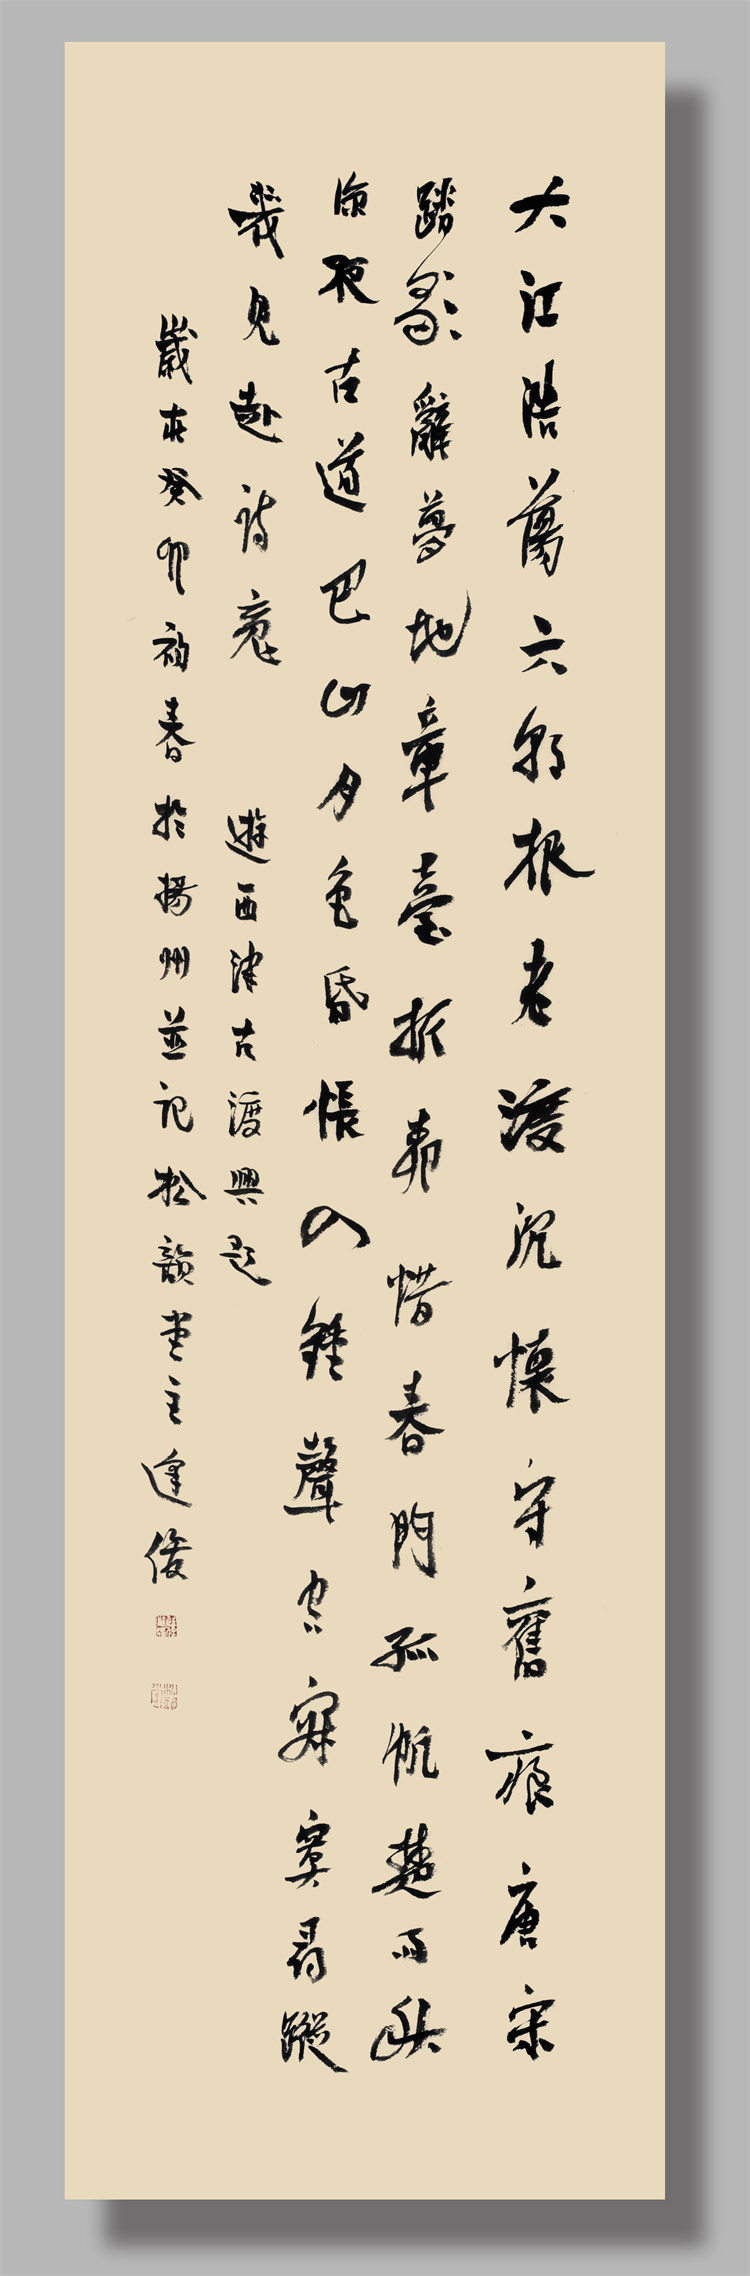 大江浩蕩六朝根老渡沉懷守舊痕唐宋
踏歌辭夢地章臺折柳惜春門孤帆楚雨秋
深夜古道巴山月色昏悵入鐘聲空寂寞尋蹤
幾見赴詩魂 遊西津古渡興題
歲在癸卯初春於揚州並記松韻堂主逢俊